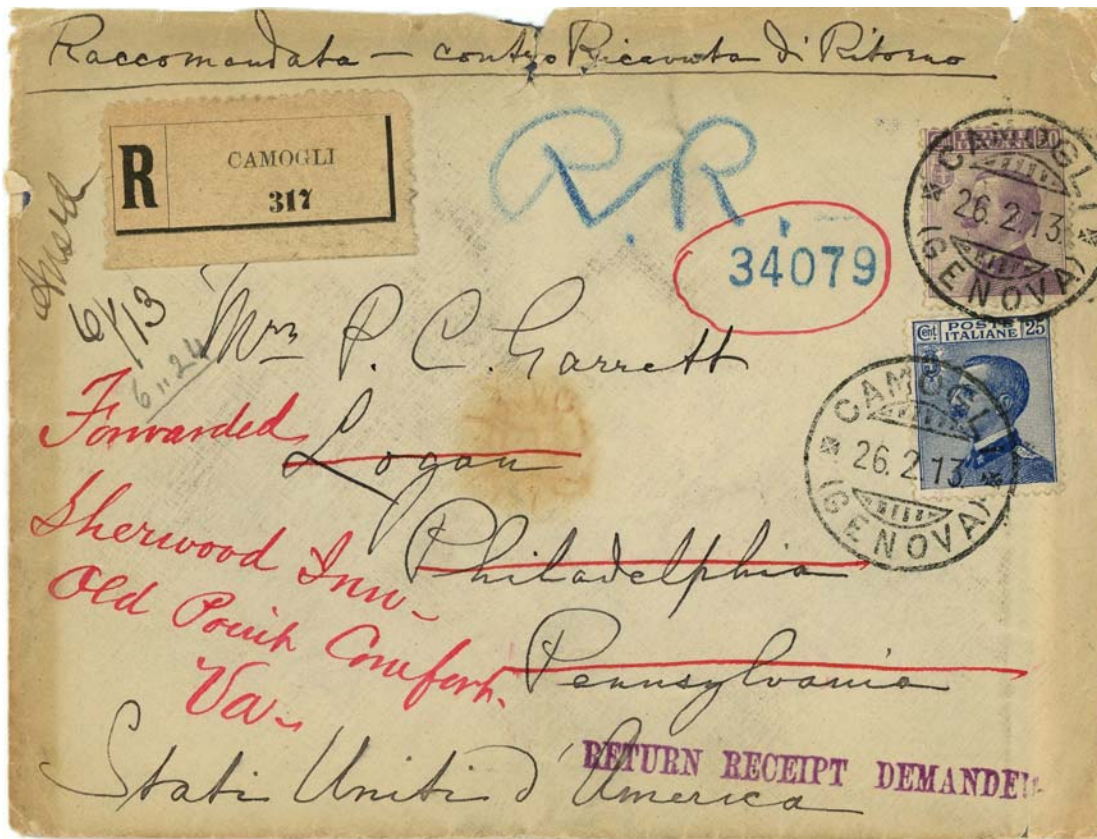 Raccomandata – contro Ricevuta di Ritorno
R
CAMOGLI
317
R.R.
34079
CAMOGLI
26.2.13
(GENOVA)
Cent. POSTE ITALIANE 25
CAMOGLI
26.2.13
(GENOVA)
6/13
Mrs P. C. Garrett
Forwarded
Logan
Sherwood Inn –
Philadelphia
Old Point Comfort.
Pennsylvania
Va –
RETURN RECEIPT DEMANDED.
Stati Uniti d'America